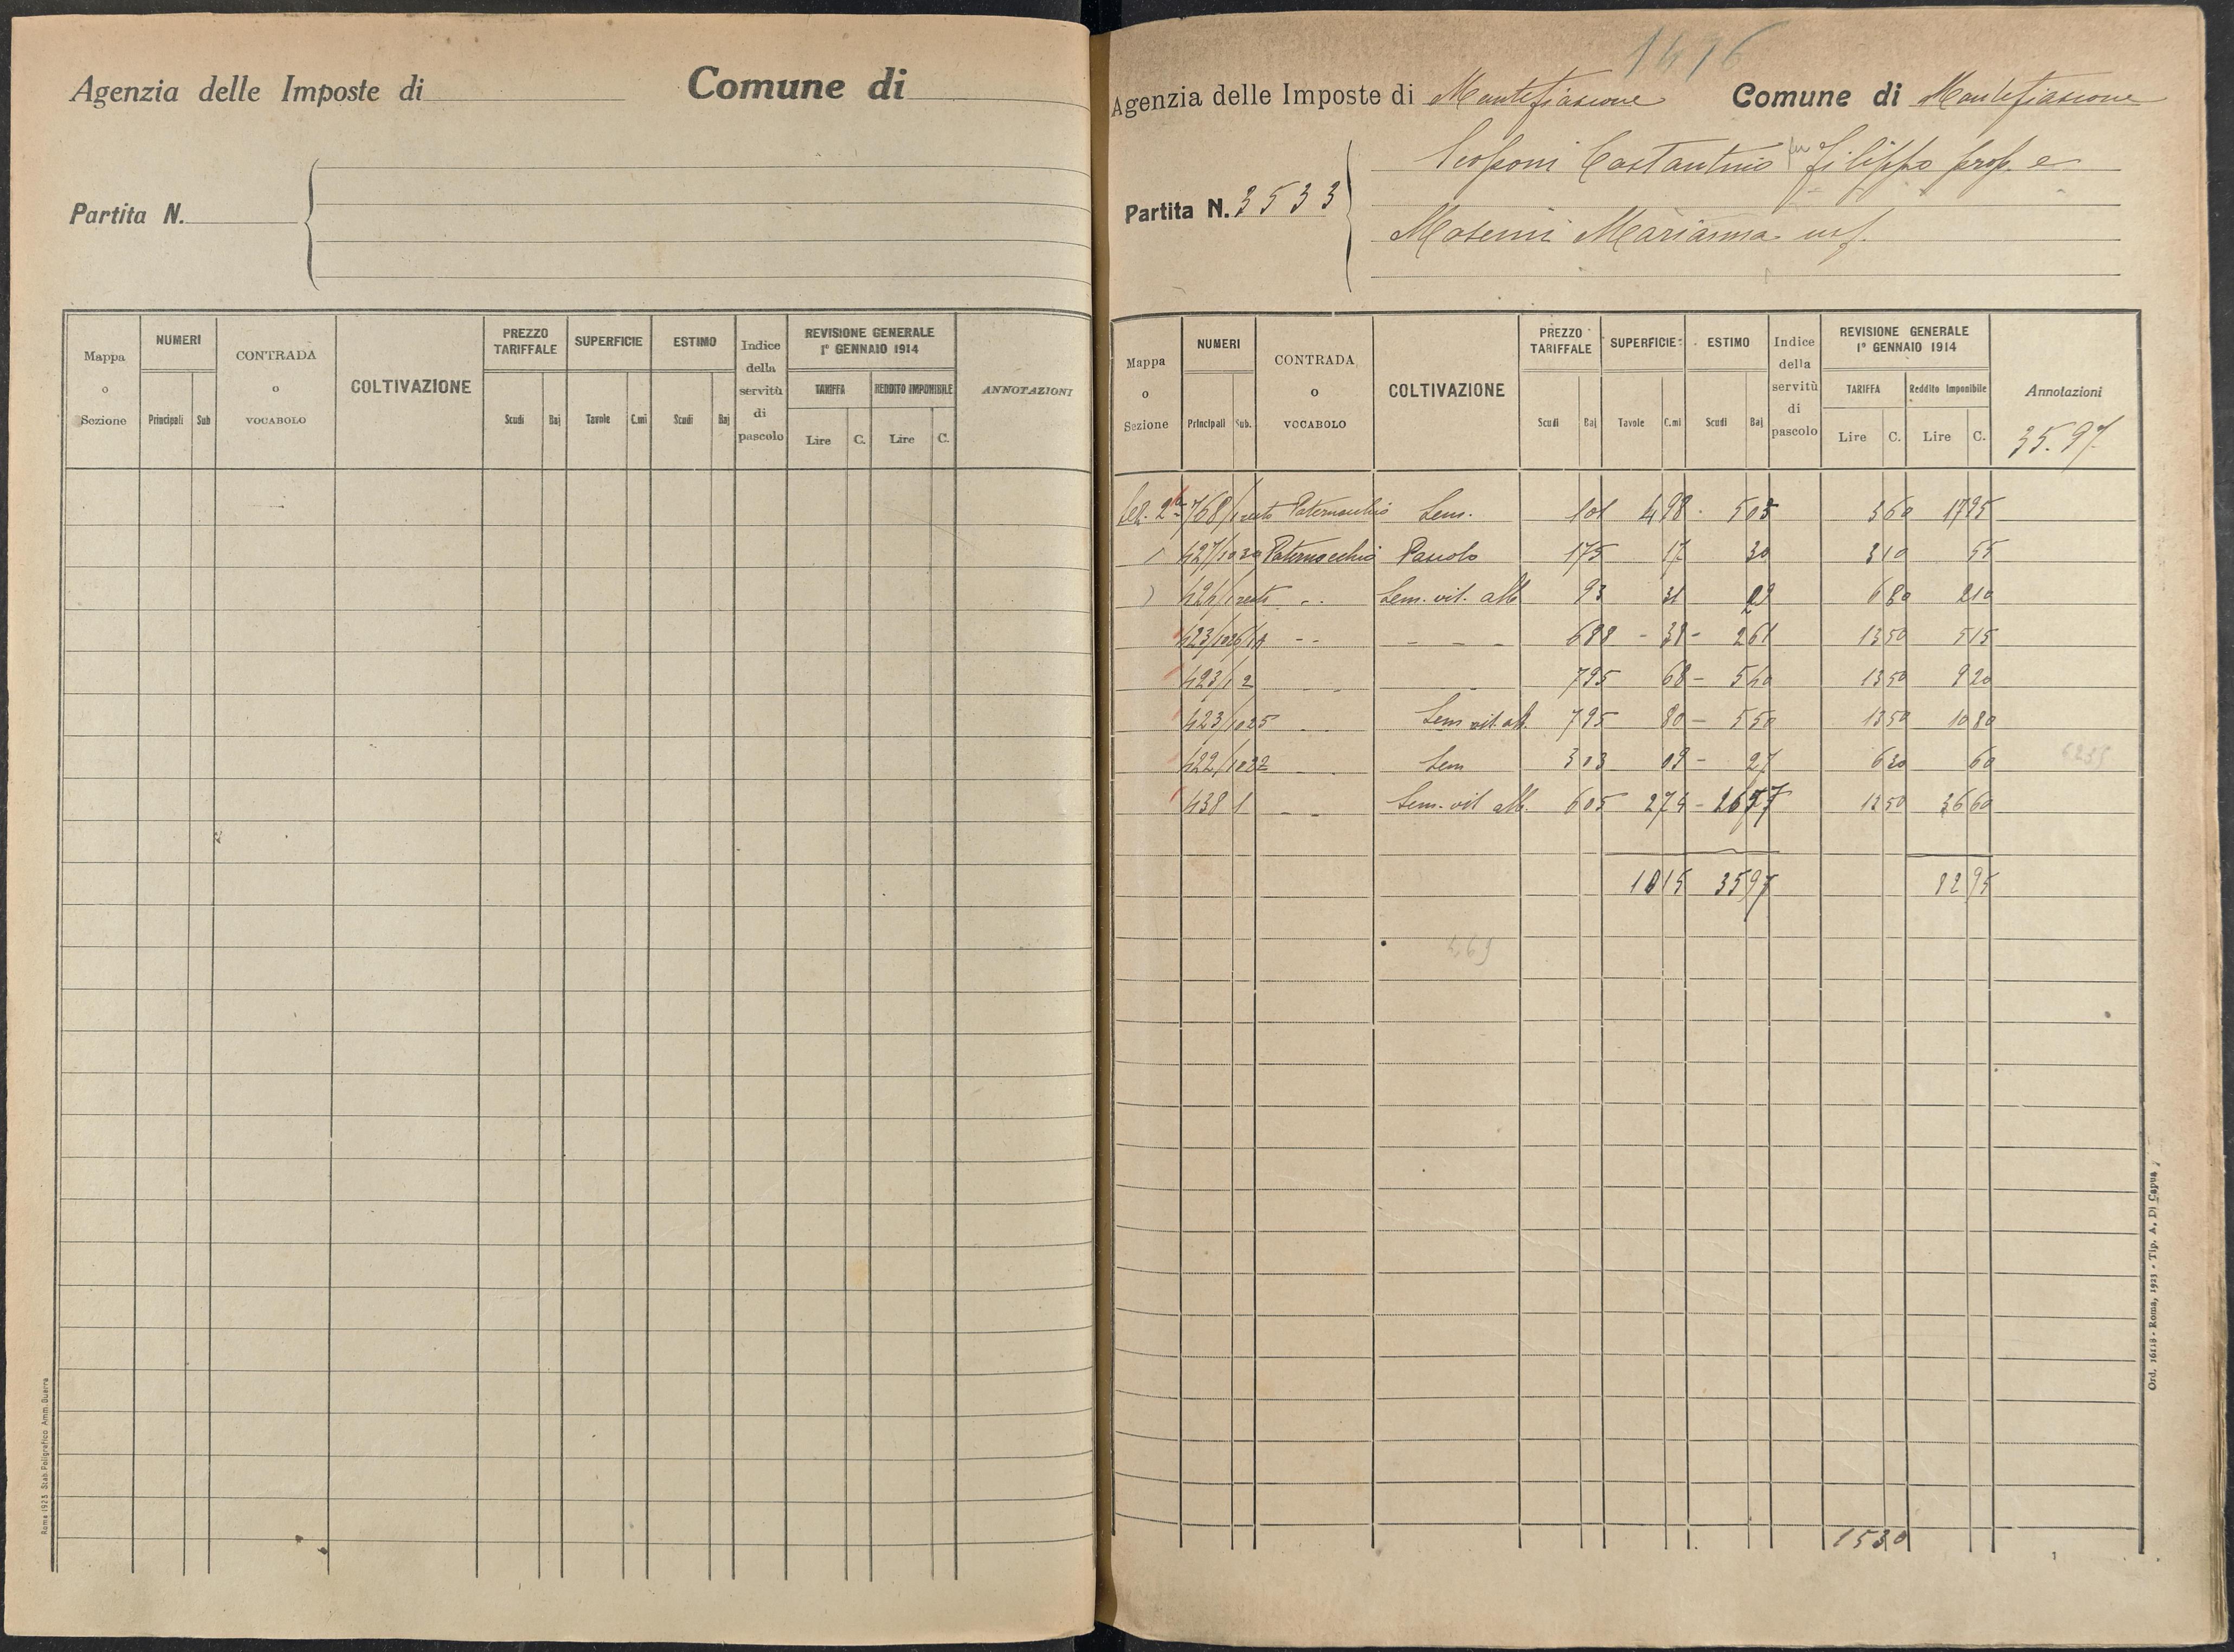 Agenzia delle Imposte di Comune di
Partita N.
Mappa o Sezione NUMERI Principali Sub CONTRADA o VOCABOLO COLTIVAZIONE PREZZO TARIFFALE Scudi Baj SUPERFICIE Tavole C.mi ESTIMO Scudi Baj Indice della servitù di pascolo REVISIONE GENERALE 1° GENNAIO 1914 TARIFFA Lire C. REDDITO IMPONIBILE Lire C. ANNOTAZIONI
Roma 1923 Stab. Poligrafico Amm. Guerra
1476
Agenzia delle Imposte di Montefiascone Comune di Montefiascone
Partita N. 3533
Scoponi Costantino fu Filippo prop. e
Moscini Marianna usf.
Mappa o Sezione NUMERI Principali Sub. CONTRADA o VOCABOLO COLTIVAZIONE PREZZO TARIFFALE Scudi Baj SUPERFICIE Tavole C.mi ESTIMO Scudi Baj Indice della servitù di pascolo REVISIONE GENERALE 1° GENNAIO 1914 TARIFFA Lire C. Reddito Imponibile Lire C. Annotazioni
35.97
Cel. 2 768/1 resto Paternocchio Sem. 101 498 503 360 1795
427/1030 Paternocchio Pascolo 175 17 30 310 55
424/1 resto Sem. vit. alb 93 31 29 680 210
423/1026/1A 688 38 261 1350 515
423/1 2 795 68 540 1350 920
423/1025 Sem vit. alb. 795 80 550 1350 1080
422/1022 Sem 303 09 27 620 60
438 1 Sem. vit alb. 605 274 1657 1350 3660
1015 3597 8295
1530
Ord. 16118 - Roma, 1923 - Tip. A. Di Capua